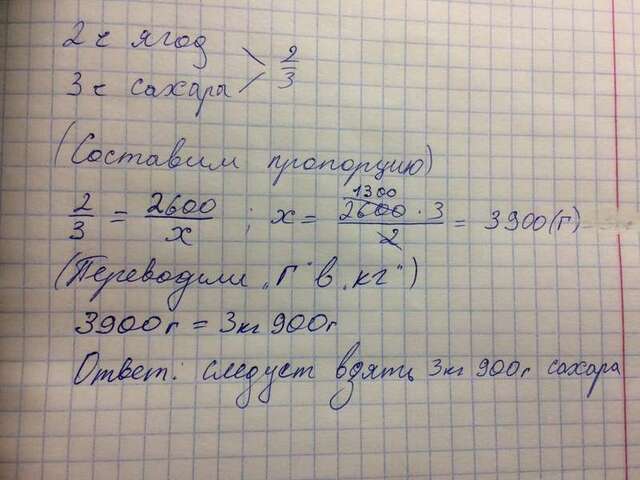 2 ч ягод
3 ч сахары
2/3
(Составим пропорцию)
2/3 = 2600/x ; x = 2600 · 3/2 = 3900 (г)
1300
(Переводим „г" в „кг")
3900г = 3кг 900г
Ответ: следует взять 3кг 900г сахара